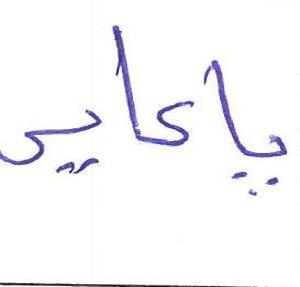 پاعایی